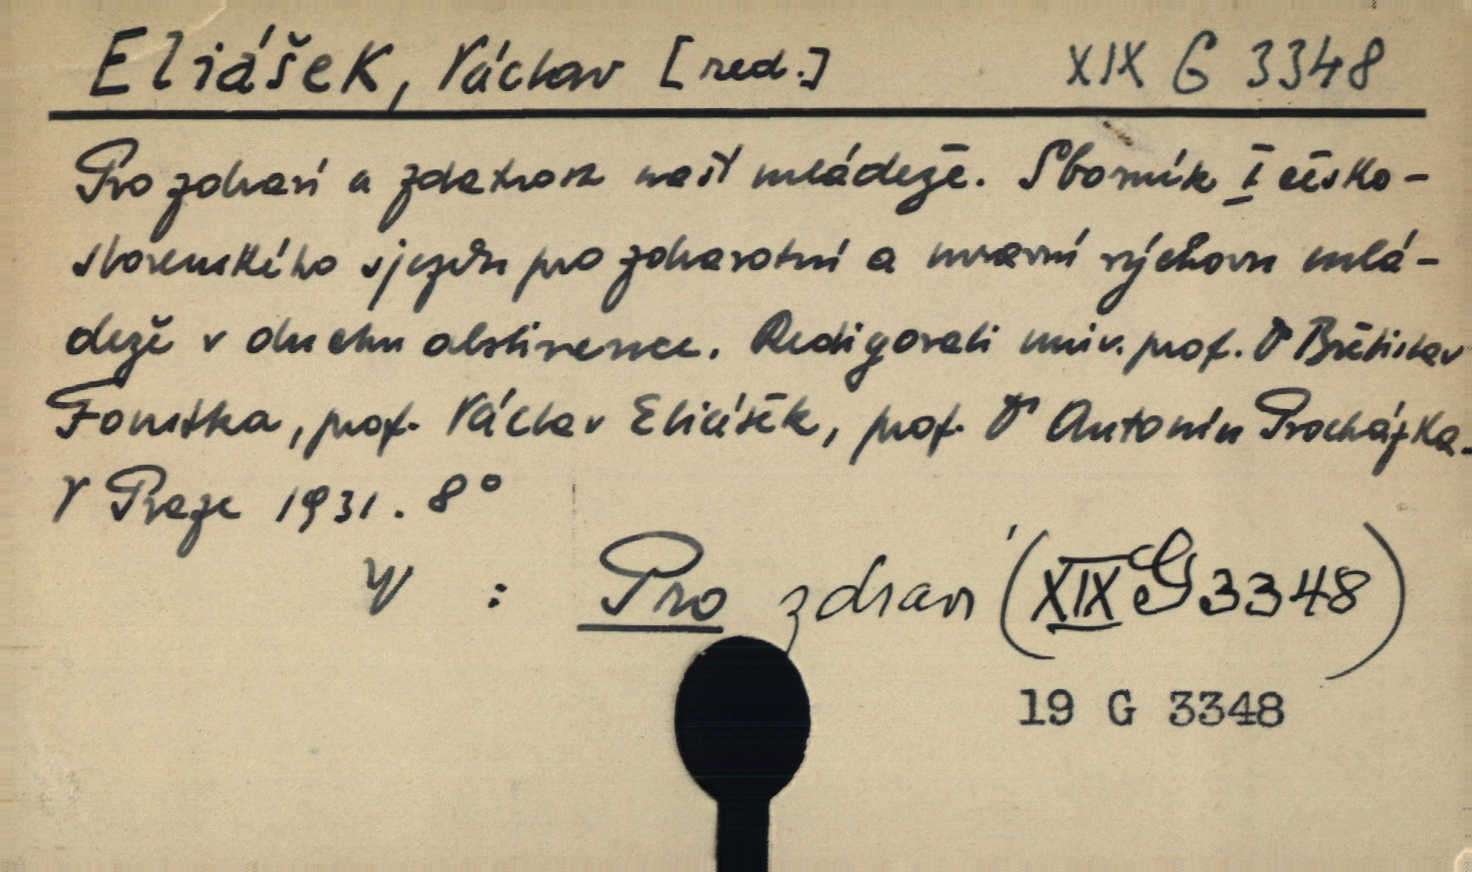 Eliášek, Václav [red.] XIX G 3348
Pro zdraví a zdatnost naší mládeže. Sborník I česko-
slovenského sjezdu pro zdravotní a mravní výchovu mlá-
deže v duchu abstinence. Redigovali univ. prof. Dr Břetislav
Foustka, prof. Václav Eliášek, prof. Dr Antonín Procházka.
V Praze 1931. 8°
: Pro zdraví (XIX G 3348)
19 G 3348